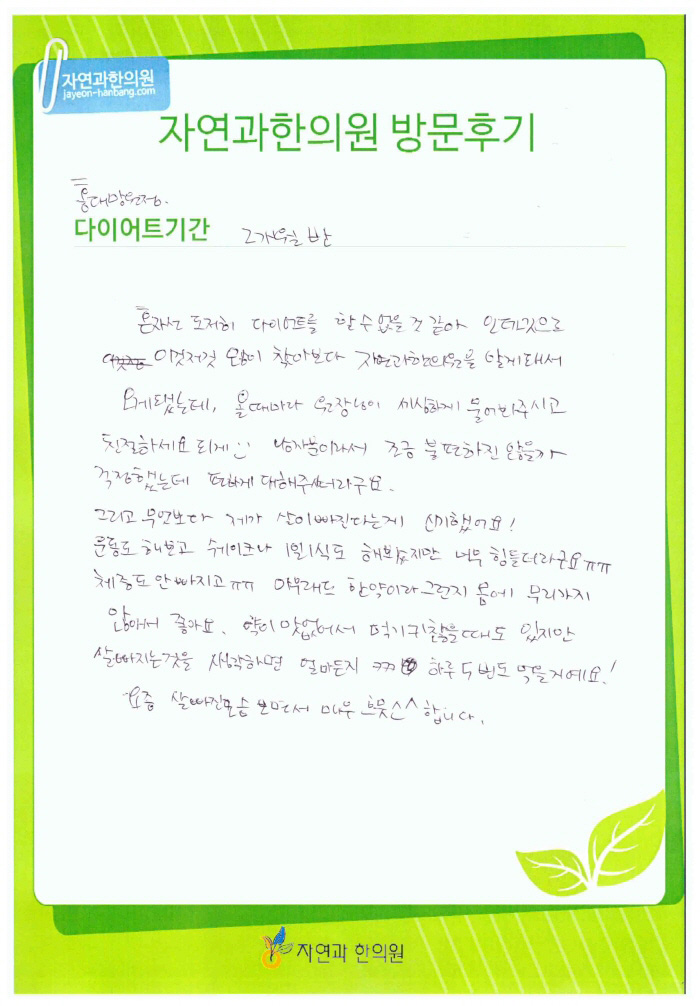 자연과한의원
jayeon-hanbang.com
자연과한의원 방문후기
홍대망원점.
다이어트기간 2개월 반
혼자선 도저히 다이어트를 할 수 없을 것 같아 인터넷으로
이것저것 많이 찾아보다 자연과한의원을 알게돼서
오게됐는데, 올때마다 원장님이 세심하게 물어봐주시고
친절하세요 되게 :) 남자분이라서 조금 불편하진 않을까
걱정했는데 편하게 대해주시더라구요.
그리고 무엇보다 제가 살이빠진다는게 신기했어요!
운동도 해보고 쉐이크나 1일1식도 해봤지만 너무 힘들더라구요ㅠㅠ
체중도 안빠지고ㅠㅠ 아무래도 한약이라그런지 몸에 무리가지
않아서 좋아요. 약이 맛없어서 먹기귀찮을때도 있지만
살빠지는것을 생각하면 얼마든지 ㅋㅋ 하루 5번도 먹을거에요!
요즘 살빠진모습 보면서 매우 흐뭇^^합니다.
자연과 한의원